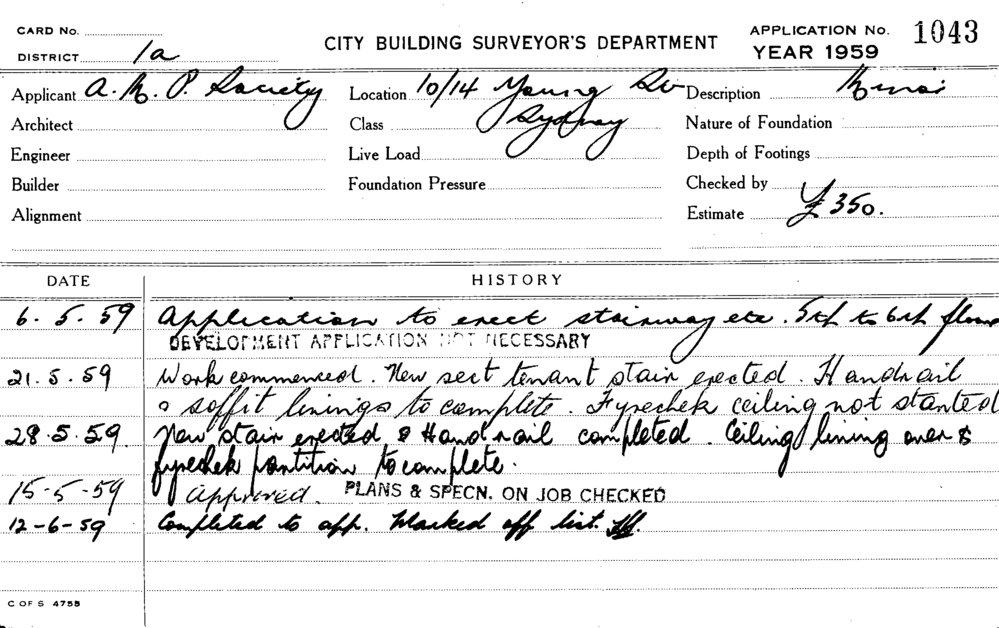 CARD No.
DISTRICT 1a
CITY BUILDING SURVEYOR'S DEPARTMENT
APPLICATION No. 1043
YEAR 1959
Applicant A. M. P. Society
Location 10/14 Young St
Sydney
Description
Architect
Class
Nature of Foundation
Engineer
Live Load
Depth of Footings
Builder
Foundation Pressure
Checked by
Alignment
Estimate £350.
DATE HISTORY
6. 5. 59 Application to erect stairway etc. 5th to 6th floor
DEVELOPMENT APPLICATION NOT NECESSARY
21. 5. 59 Work commenced. New tenant stair erected. Handrail
& soffit linings to complete. Fyrechek ceiling not started
28. 5. 59. New stair erected & Handrail completed. Ceiling lining over &
fyrechek partition to complete.
15-5-59 Approved. PLANS & SPECN. ON JOB CHECKED
12-6-59 Completed to app. Marked off list.
C OF S 4755